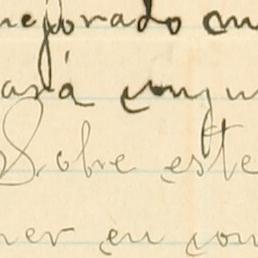 mejorado
ará conju
Sobre este
ner en con